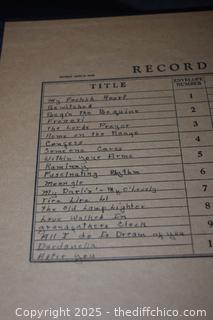 RECORD
TITLE
ENVELOPE NUMBER
My Foolish Heart 1
Bewitched
Begin the Beguine 2
Frenesi
The Lords Prayer 3
Home on the Range
Congers 4
Someone Cares
Within Your Arms 5
Ramirez
Fascinating Rhythm 6
Moonglo
My Darlin' - My O'Lovely 7
Tira Lira Li
The Old Lamp Lighter 8
Love Walked In
Grandfathers Clock 9
All I do Is Dream of You
Dardanella 1
After You
Copyright 2025 - thediffichci.com